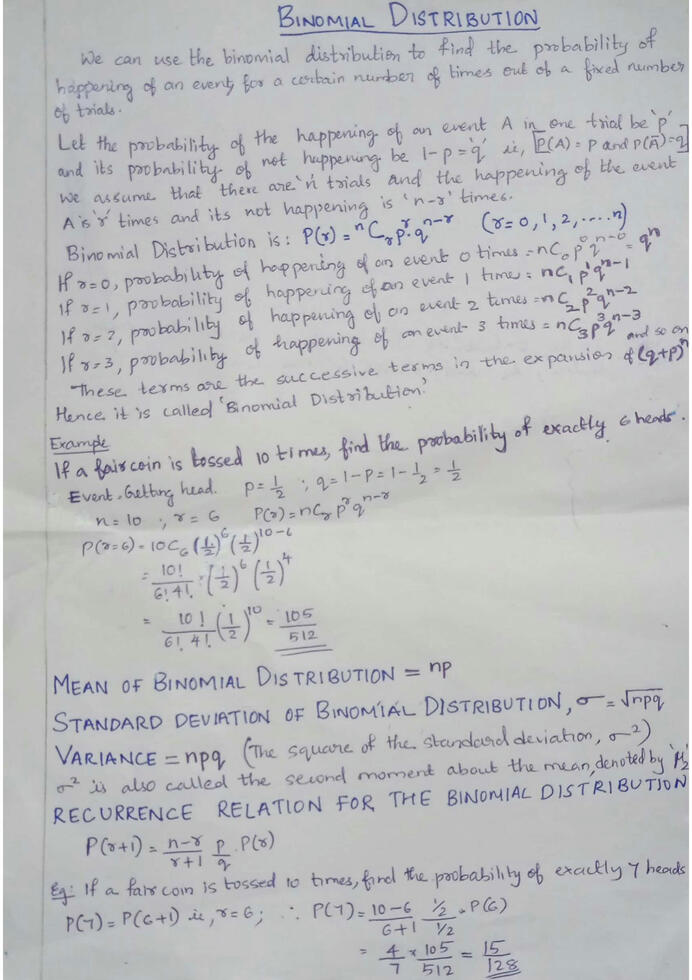 BINOMIAL DISTRIBUTION
We can use the binomial distribution to find the probability of
happening of an event, for a certain number of times out of a fixed number
of trials.
Let the probability of the happening of an event A in one trial be 'p'
and its probability of not happening be 1-p = 'q' ie, [P(A) = p and P(Ā) = q]
We assume that there are 'n' trials and the happening of the event
A is 'r' times and its not happening is 'n-r' times.
Binomial Distribution is: P(r) = ⁿCᵣ pʳ qⁿ⁻ʳ (r = 0, 1, 2, .....n)
If r=0, probability of happening of an event 0 times = nC₀ p⁰ qⁿ⁻⁰ = qⁿ
If r=1, probability of happening of an event 1 time = nC₁ p¹ qⁿ⁻¹
If r=2, probability of happening of an event 2 times = nC₂ p² qⁿ⁻²
If r=3, probability of happening of an event 3 times = nC₃ p³ qⁿ⁻³ and so on
These terms are the successive terms in the expansion of (q+p)ⁿ
Hence it is called 'Binomial Distribution'
Example
If a fair coin is tossed 10 times, find the probability of exactly 6 heads.
Event - Getting head. p = 1/2 ; q = 1-p = 1 - 1/2 = 1/2
n = 10 ; r = 6 P(r) = nCᵣ pʳ qⁿ⁻ʳ
P(r=6) = 10C₆ (1/2)⁶ (1/2)¹⁰⁻⁶
= 10!/6! 4! · (1/2)⁶ (1/2)⁴
= 10!/6! 4! (1/2)¹⁰ = 105/512
MEAN OF BINOMIAL DISTRIBUTION = np
STANDARD DEVIATION OF BINOMIAL DISTRIBUTION, σ = √npq
VARIANCE = npq (The square of the standard deviation, σ²)
σ² is also called the second moment about the mean, denoted by 'μ₂'
RECURRENCE RELATION FOR THE BINOMIAL DISTRIBUTION
P(r+1) = n-r/r+1 p/q . P(r)
Eg: If a fair coin is tossed 10 times, find the probability of exactly 7 heads
P(7) = P(6+1) ie, r=6; ∴ P(7) = 10-6/6+1 · ½/½ · P(6)
= 4/7 × 105/512 = 15/128